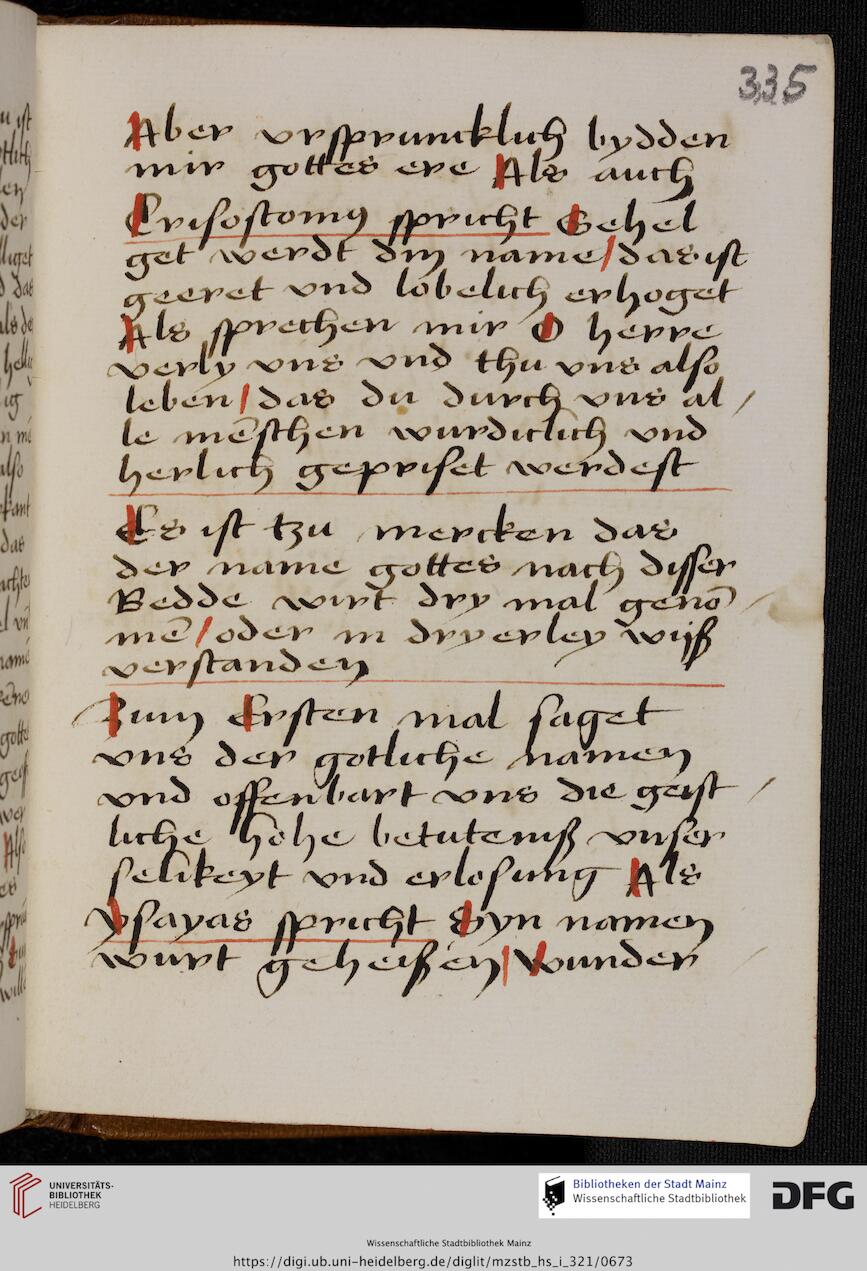 335
Aber vrspruncklich bydden
mir gottes ere Als auch
Crisostomꝰ spricht Gehel
get werdt din name / das ist
geeret vnd lobelich erhoget
Als sprechen mir O herre
verly vns vnd thu vns also
leben / das du durch vns al /
le mēschen wurdiclich vnd
herlich gepriset werdest
Es ist tzu mercken das
der name gottes nach disser
Redde wirt dry mal genō /
mē / oder in dryerley wijß
verstanden
Zum Ersten mal saget
vns der gotliche namen
vnd offenbart vns die geist /
liche hohe betuteniß vnser
selikeyt vnd erlosung Als
ysayas spricht Syn namen
wurt geheißen / wunder /
UNIVERSITÄTS-
BIBLIOTHEK
HEIDELBERG
Bibliotheken der Stadt Mainz
Wissenschaftliche Stadtbibliothek
DFG
Wissenschaftliche Stadtbibliothek Mainz
https://digi.ub.uni-heidelberg.de/diglit/mzstb_hs_i_321/0673